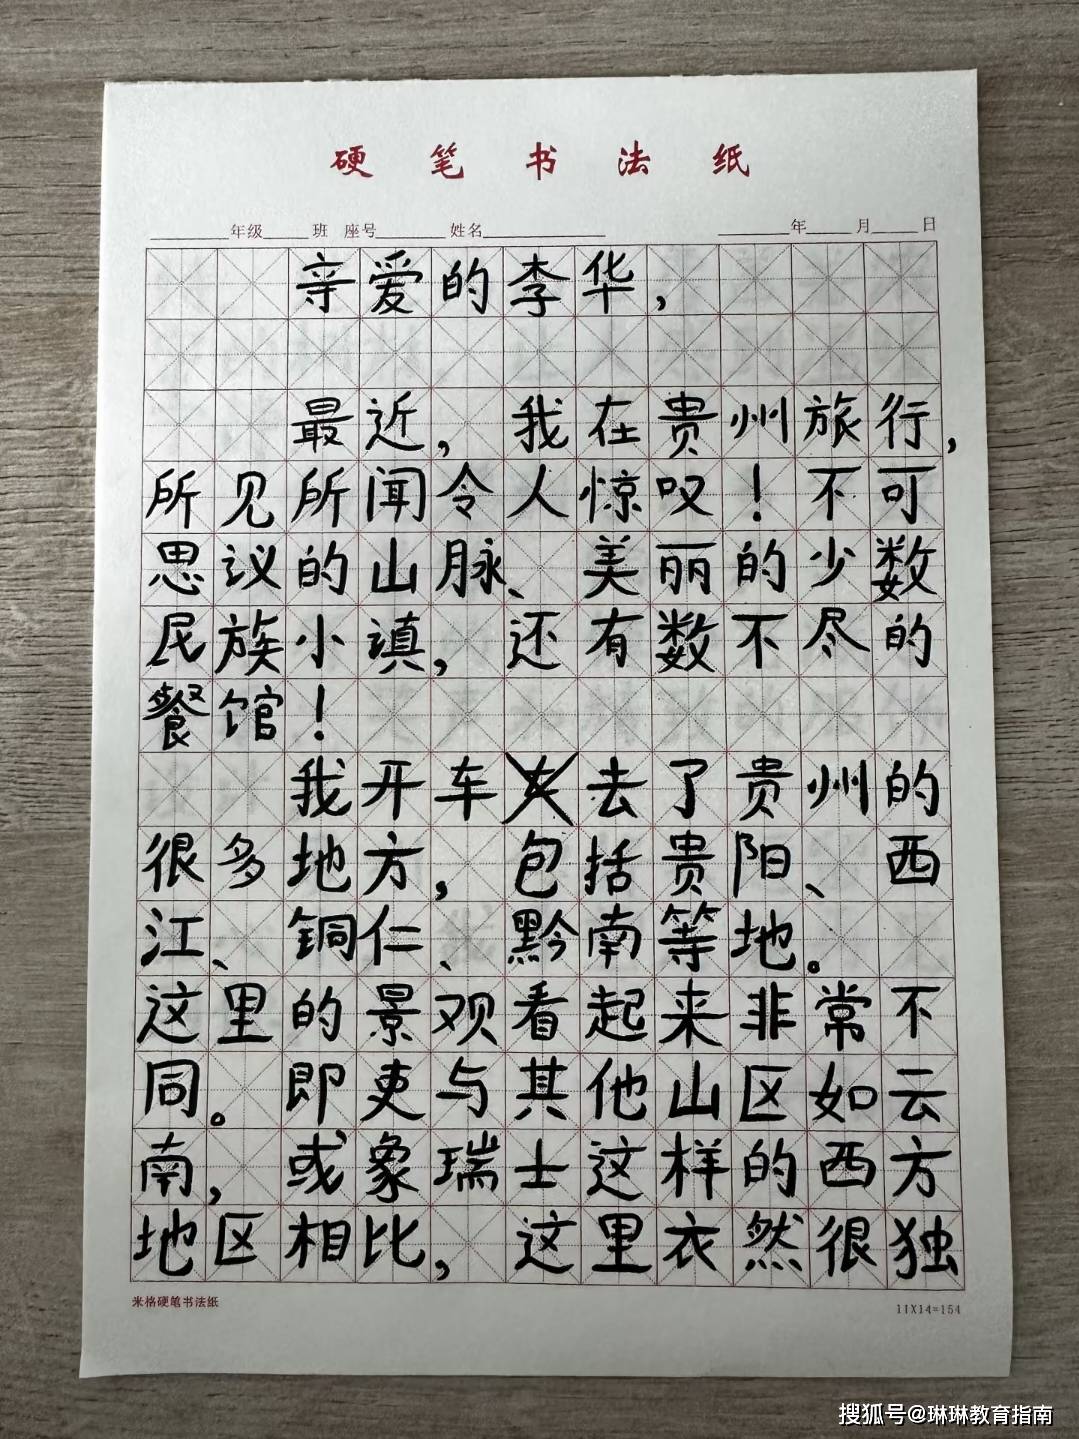 硬笔书法纸
年级 班 座号 姓名 年 月 日
亲爱的李华，
最近，我在贵州旅行，
所见所闻令人惊叹！不可
思议的山脉、美丽的少数
民族小镇，还有数不尽的
餐馆！
我开车去了贵州的
很多地方，包括贵阳、西
江、铜仁、黔南等地。
这里的景观看起来非常不
同。即吏与其他山区如云
南，或象瑞士这样的西方
地区相比，这里衣然很独
米格硬笔书法纸
11X14=154
搜狐号@琳琳教育指南